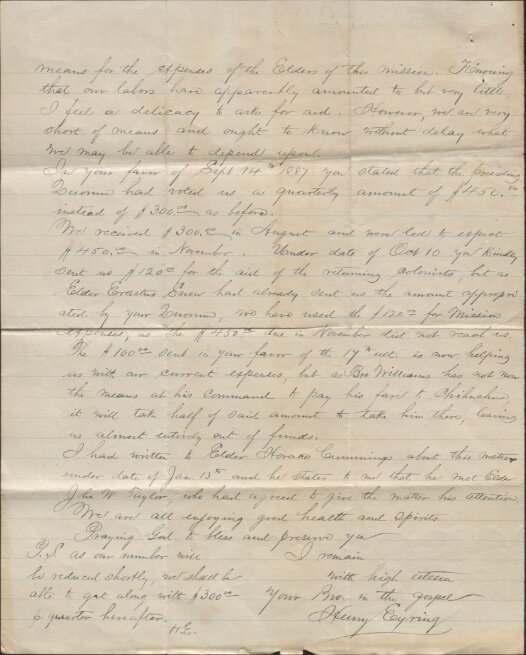 means for the expenses of the Elders of this mission. Knowing
that our labors have apparently amounted to but very little,
I feel a delicacy to ask for aid. However, we are very
short of means, and ought to know without delay what
we may be able to depend upon.
In your favor of Sept 14th 1887 you stated that the presiding
Quorum had voted us a quarterly amount of $450.00
instead of $300.00 as before.
We received $300.00 in August and were led to expect
$450.00 in November. Under date of Oct 10 you kindly
sent us $120.00 for the aid of the returning colonists, but as
Elder Erastus Snow had already sent us the amount appropri
ated by your Quorum, we have used the $120.00 for Mission
expenses, as the $450.00 due in November did not reach us.
The $100.00 sent in your favor of the 17th ult. is now helping
us with our current expenses, but as Bro Williams has not now
the means at his command to pay his fare to Chihuahua,
it will take half of said amount to take him there, leaving
us almost entirely out of funds.
I had written to Elder Horace Cummings about this matter
under date of Jan 13th and he states to me that he met Elder
John W. Taylor, who had agreed to give the matter his attention.
We are all enjoying good health and spirits.
Praying God to bless and preserve you
I remain
with high esteem
Your Bro. in the gospel
Henry Eyring
P.S. as our number will
be reduced shortly, we shall be
able to get along with $300.00
pr quarter hereafter.
H.E.